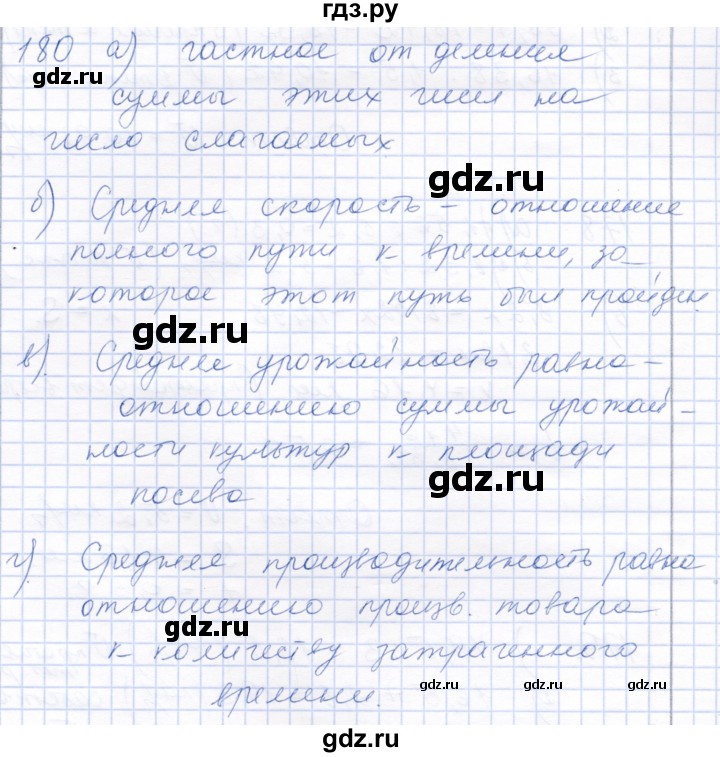 гдз.ру
180 а) частное от деления
gdz.ru
суммы этих чисел на
число слагаемых
gdz.ru
б) Средняя скорость - отношение
полного пути к времени, за
которое этот путь был пройден.
gdz.ru
в) Среднее урожайность равна -
отношению суммы урожай -
ности культур к площади
gdz.ru
посева
г) Средняя производительность равна
отношению произв. товара
gdz.ru
к количеству затраченного
gdz.ru gdz.ru
времени.
gdz.ru